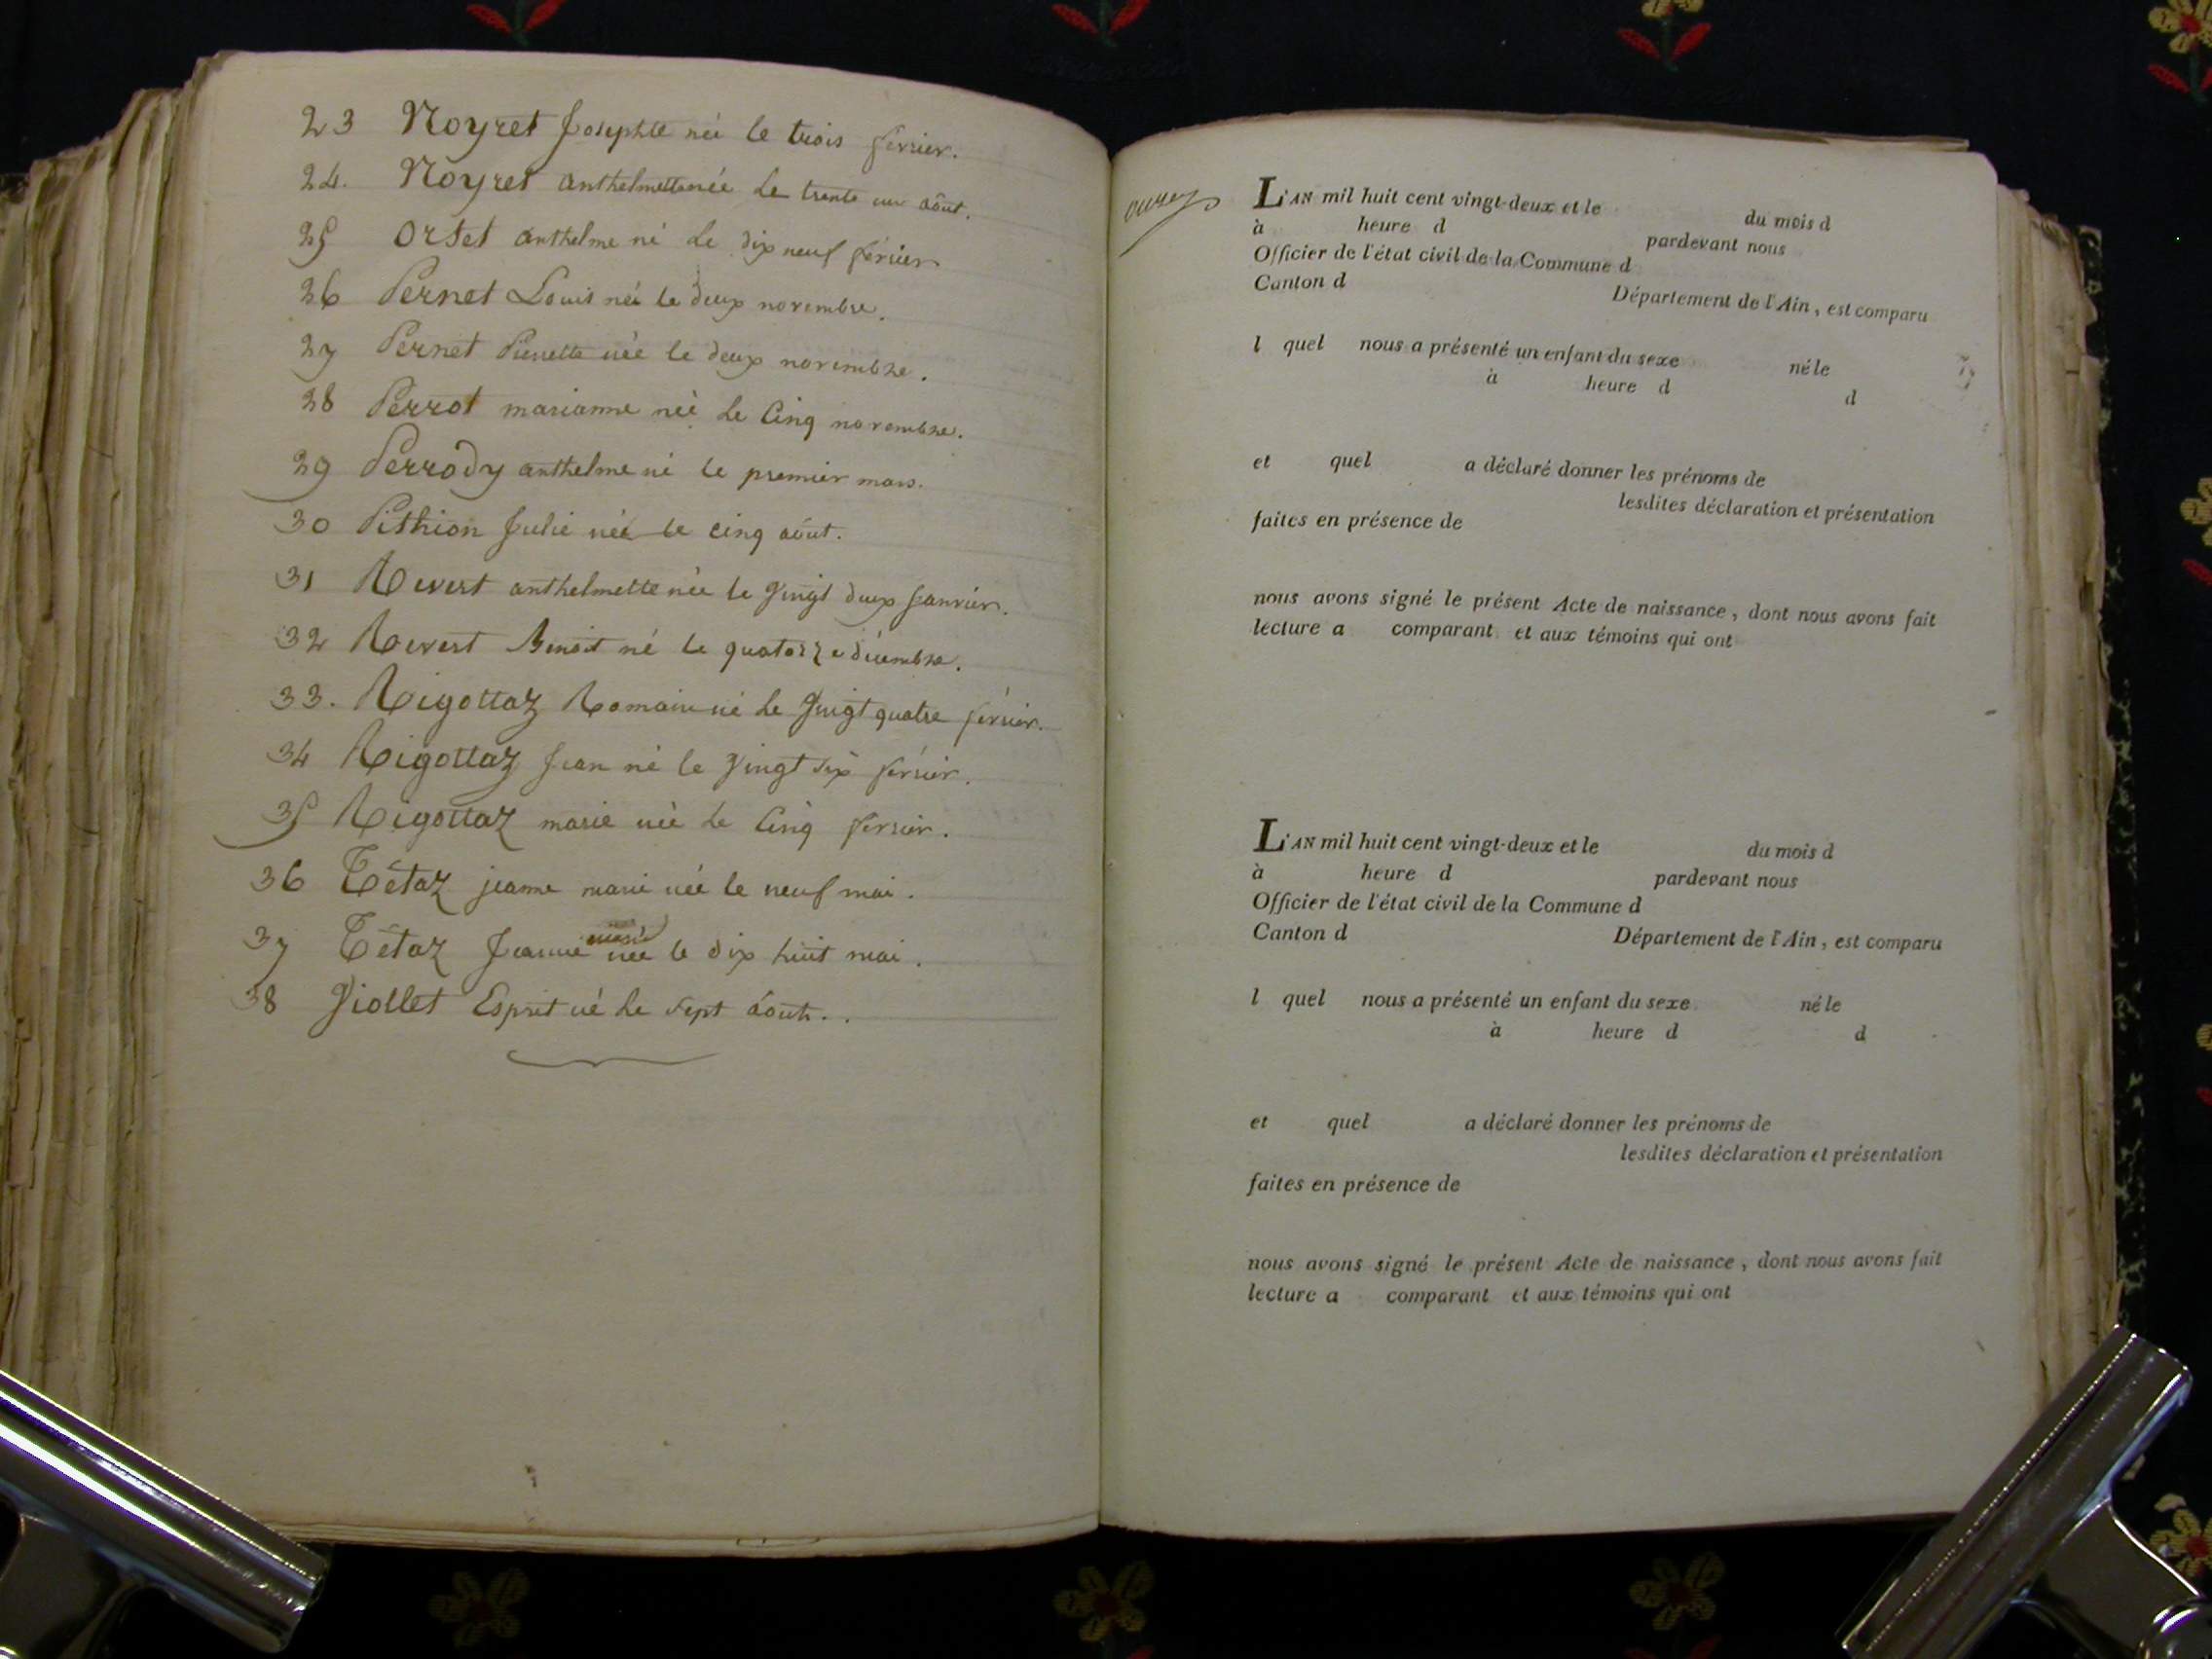 23 Noyret Josephte née le trois février.
24. Noyret anthelmette née le trente un août.
25 Ortet anthelme né le dix neuf février
26 Pernet Louis né le deux novembre.
27 Pernet Pierrette née le deux novembre.
28 Perrot marianne née le Cinq novembre.
29 Perrody anthelme né le premier mars.
30 Pithion Julie née le cinq août.
31 Revert anthelmette née le vingt deux Janvier.
32 Revert Benoit né le quatorze décembre.
33. Rigottaz Romain né le vingt quatre février.
34 Rigottaz Jean né le vingt six février.
35 Rigottaz marie née le Cinq février.
36 Tétaz jeanne marie née le neuf mai.
37 Tétaz Jeanne marie née le dix huit mai.
38 Viollet Esprit né le sept août.
L'AN mil huit cent vingt-deux et le du mois d
à heure d pardevant nous
Officier de l'état civil de la Commune d
Canton d Département de l'Ain, est comparu
l quel nous a présenté un enfant du sexe né le
à heure d d
et quel a déclaré donner les prénoms de
lesdites déclaration et présentation
faites en présence de
nous avons signé le présent Acte de naissance, dont nous avons fait
lecture a comparant et aux témoins qui ont
L'AN mil huit cent vingt-deux et le du mois d
à heure d pardevant nous
Officier de l'état civil de la Commune d
Canton d Département de l'Ain, est comparu
l quel nous a présenté un enfant du sexe né le
à heure d d
et quel a déclaré donner les prénoms de
lesdites déclaration et présentation
faites en présence de
nous avons signé le présent Acte de naissance, dont nous avons fait
lecture a comparant et aux témoins qui ont